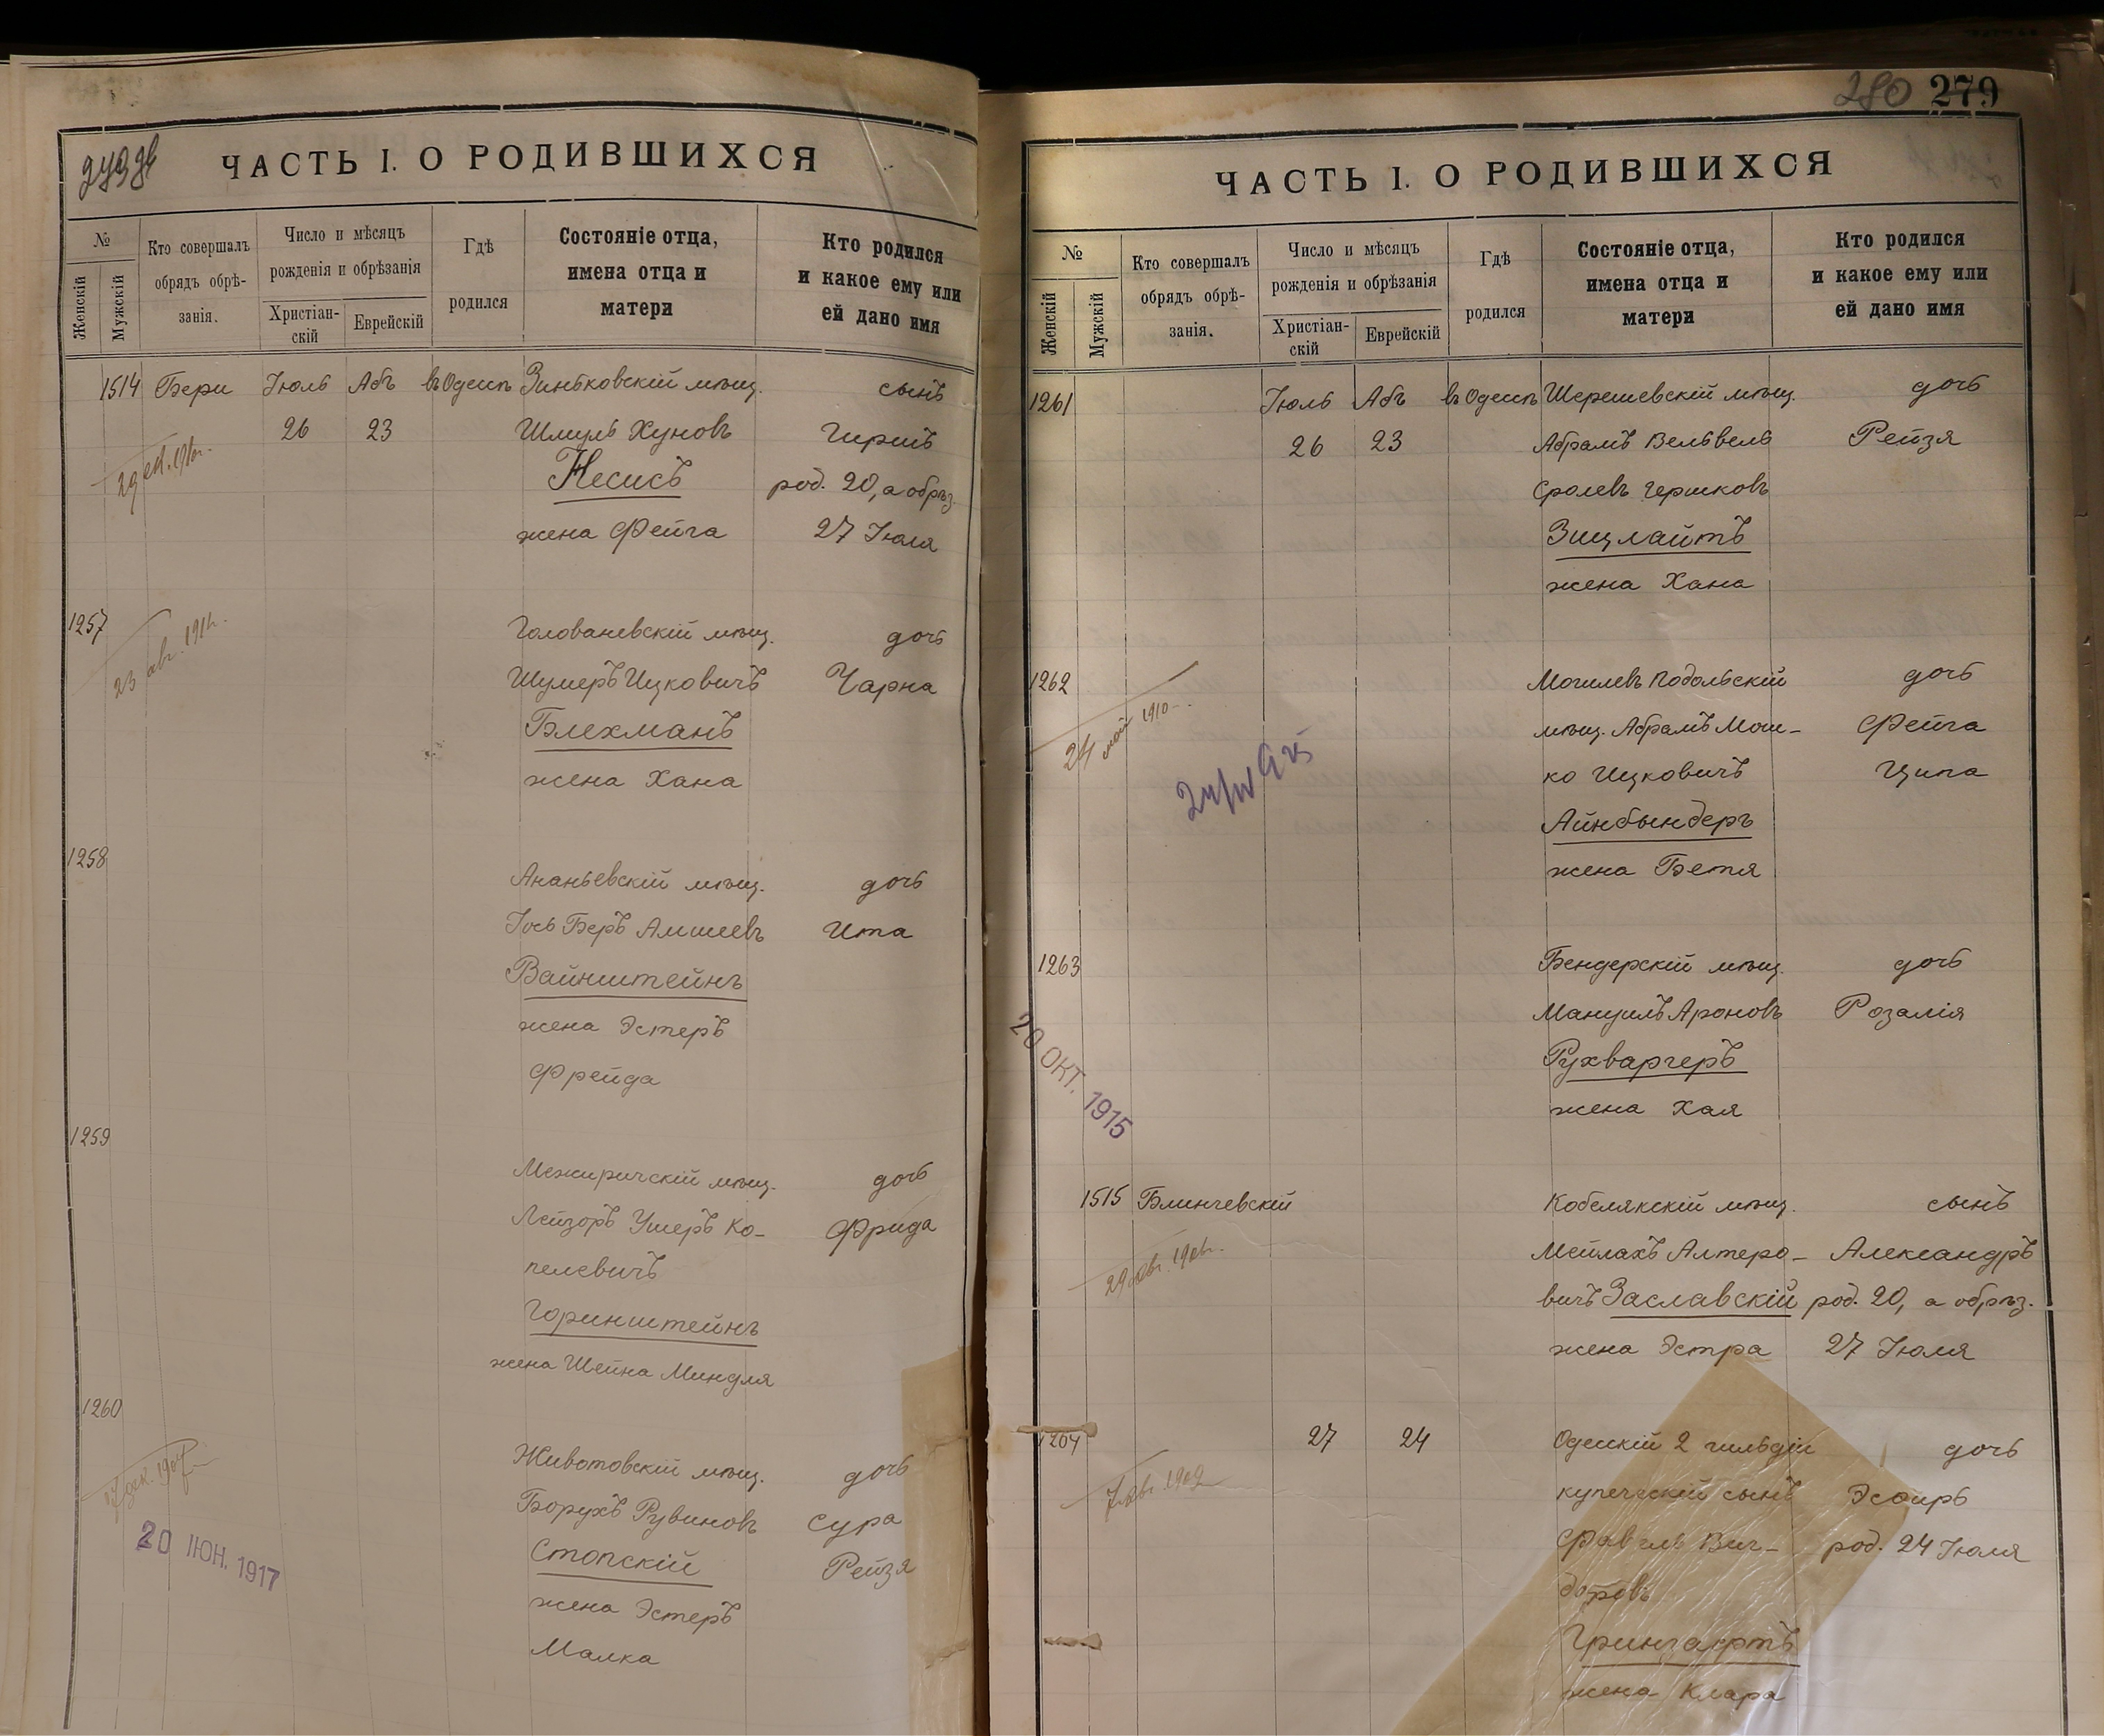 279 об
ЧАСТЬ I. О РОДИВШИХСЯ
№
Женскій
Мужскій
Кто совершалъ
обрядъ обрѣ-
занія.
Число и мѣсяцъ
рожденія и обрѣзанія
Христіан-
скій
Еврейскій
Гдѣ
родился
Состояніе отца,
имена отца и
матери
Кто родился
и какое ему или
ей дано имя
1514 Бери Іюль Абъ въ Одессѣ Зинбковскій мѣщ. сынъ
26 23 Шмуль Хуновъ Гиршъ
Несисъ род. 20, а обрѣз.
жена Фейга 27 Іюля
1257
23 авг. 1911г.
Голованевскій мѣщ. дочь
Шумеръ Ицковичъ Чарна
Блехманъ
жена Хана
1258
Ананьевскій мѣщ. дочь
Іось Беръ Амшеевъ Ита
Вайнштейнъ
жена Эстеръ
Фрейда
1259
Межиричскій мѣщ. дочь
Лейзоръ Ушеръ Ко- Фрида
пелевичъ
Горинштейнъ
жена Шейна Миндля
1260
Животовскій мѣщ. дочь
Борухъ Рувиновъ Сура
Стопскій Рейзя
жена Эстеръ
Малка
20 ІЮН. 1917
280 279
ЧАСТЬ I. О РОДИВШИХСЯ
№
Женскій
Мужскій
Кто совершалъ
обрядъ обрѣ-
занія.
Число и мѣсяцъ
рожденія и обрѣзанія
Христіан-
скій
Еврейскій
Гдѣ
родился
Состояніе отца,
имена отца и
матери
Кто родился
и какое ему или
ей дано имя
1261 Іюль Абъ въ Одессѣ Шерешевскій мѣщ. дочь
26 23 Абрамъ Вельвель Рейзя
Сролевъ Гершковъ
Зицлайтъ
жена Хана
1262 Могилевъ Подольскій дочь
24 май 1910
мѣщ. Абрамъ Мош- Фейга
ко Ицковичъ Ципа
Айнбындеръ
жена Бетя
1263 Бендерскій мѣщ. дочь
Мануилъ Ароновъ Розалія
Рухваргеръ
жена Хая
20 ОКТ. 1915
1515 Блинчевскій Кобелякскій мѣщ. сынъ
Мейлахъ Алтеро- Александръ
вичъ Заславскій род. 20, а обрѣз.
жена Эстра 27 Іюля
1264 27 24 Одесскій 2 гильдіи дочь
купеческій сынъ Эсѳирь
Фавель Виг- род. 24 Іюля
доровъ
Грингафтъ
жена Клара